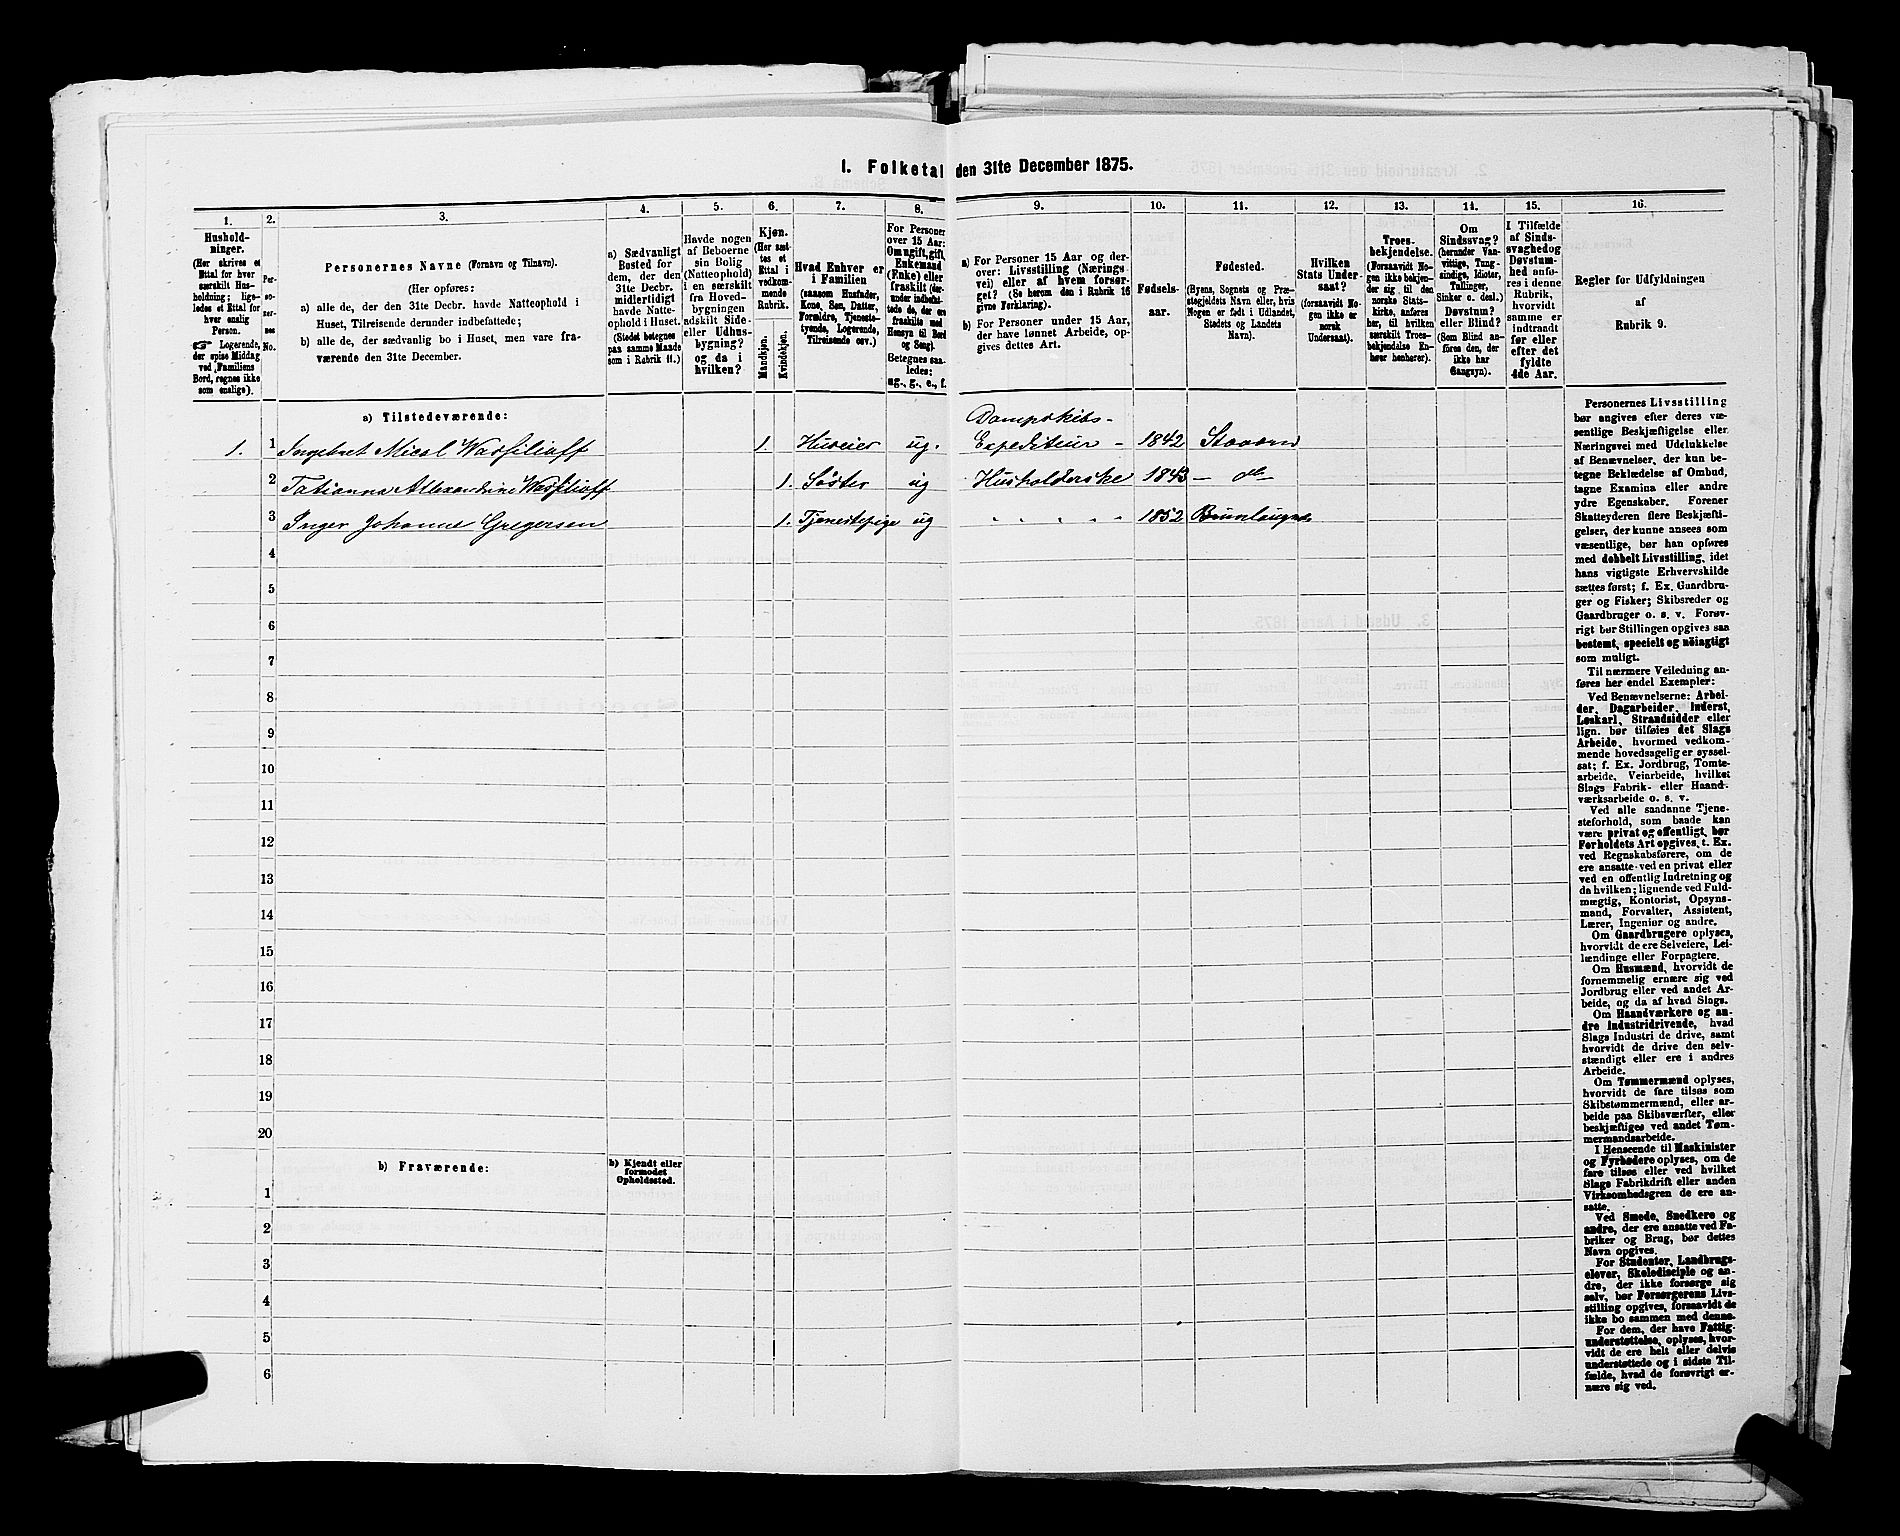 1. Folketal den 31te December 1875.
1. 2. 3. 4. 5. 6. 7. 8. 9. 10. 11. 12. 13. 14. 15. 16.
Hushold-
ninger.
(Her skrives et
Ettal for hver
særskilt Hus-
holdning; lige-
ledes et Ettal for
hver enslig
Person.
☞ Logerende,
der spise Middag
ved Familiens
Bord, regnes ikke
som enslige).
Per-
so-
ner-
nes
No.
Personernes Navne (Fornavn og Tilnavn).
(Her opføres:
a) alle de, der den 31te Decbr. havde Natteophold i
Huset, Tilreisende derunder indbefattede;
b) alle de, der sædvanlig bo i Huset, men vare fra-
værende den 31te December.
a) Sædvanligt
Bosted for
dem, der den
31te Decbr.
midlertidigt
havde Natte-
ophold i Huset.
(Stedet betegnes
paa samme Maade
som i Rubrik 11.)
Havde nogen
af Beboerne
sin Bolig
(Natteophold)
i en særskilt
fra Hoved-
bygningen
adskilt Side-
eller Udhus-
bygning?
og da i
hvilken?
Kjøn.
(Her sæt-
tes et
Ettal i
vedkom-
mende
Rubrik.
Mandkjøn.
Kvindekjøn.
Hvad Enhver er
i Familien
(saasom Husfader,
Kone, Søn, Datter,
Forældre, Tjeneste-
tyende, Logerende,
Tilreisende osv.)
For Personer
over 15 Aar:
Om ugift, gift,
Enkemand
(Enke) eller
fraskilt (der-
under indbefat-
tede de, der ere
fraskilte med
Hensyn til Bord
og Seng).
Betegnes saa-
ledes:
ug., g., e., f.
a) For Personer 15 Aar og der-
over: Livsstilling (Nærings-
vei) eller af hvem forsør-
get? (Se herom den i Rubrik 16
givne Forklaring).
b) For Personer under 15 Aar,
der have lønnet Arbeide, op-
gives dettes Art.
Fødsels-
aar.
Fødested.
(Byens, Sognets og Præ-
stegjeldets Navn eller, hvis
Nogen er født i Udlandet,
Stedets og Landets
Navn).
Hvilken
Stats Under-
saat?
(forsaavidt No-
gen ikke er
norsk
Undersaat).
Troes-
bekjendelse.
(Forsaavidt No-
gen ikke bekjen-
der sig til den
norske Stats-
kirke, anføres
her, til hvilken
særskilt Troes-
bekjendelse En-
hver henhører).
Om
Sindssvag?
(herunder Van-
vittige, Tung-
sindige, Idioter,
Tullinger,
Sinker o. desl.)
Døvstum?
eller Blind?
(Som Blind an-
føres den, der
ikke har
Gangsyn).
I Tilfælde
af Sinds-
svaghed og
Døvstum-
hed anfø-
res i denne
Rubrik,
hvorvidt
samme er
indtraadt
før eller
efter det
fyldte
4de Aar.
Regler for Udfyldningen
af
Rubrik 9.
a) Tilstedeværende:
1. 1 Ingebret Micael Wassilioff 1. Huseier ug. Dampskibs-
Expediteur - 1842 Stavern
2 Tatianna Allexandrine Wassilioff 1. Søster ug Husholderske 1843 - do -
3 Inger Johanne Gregersen 1. Tjenestepige ug " " " " " 1852 Brunlaugnæs
4
5
6
7
8
9
10
11
12
13
14
15
16
17
18
19
20
b) Fraværende:
b) Kjendt eller
formodet
Opholdssted.
1
2
3
4
5
6
Personernes Livsstilling
bør angives efter deres væ-
sentlige Beskjæftigelse eller
Næringsvei med Udelukkelse
af Benævnelser, der kun be-
tegne Beklædelse af Ombud,
tagne Examina eller andre
ydre Egenskaber. Forener
Skatteyderen flere Beskjæfti-
gelser, der kunne ansees som
væsentlige, bør han opføres
med dobbelt Livsstilling, idet
hans vigtigste Erhvervskilde
sættes først; f. Ex. Gaardbru-
ger og Fisker; Skibsreder og
Gaardbruger o. s. v. Forøv-
rigt bør Stillingen opgives saa
bestemt, specielt og nöiagtigt
som muligt.
Til nærmere Veiledning an-
føres her endel Exempler:
Ved Benævnelserne: Arbei-
der, Dagarbeider, Inderst,
Løskarl, Strandsidder eller
lign. bør tilføies det Slags
Arbeide, hvormed vedkom-
mende hovedsagelig er syssel-
sat; f. Ex. Jordbrug, Tomte-
arbeide, Veiarbeide, hvilket
Slags Fabrik- eller Haand-
værksarbeide o. s. v.
Ved alle saadanne Tjene-
steforhold, som baade kan
være privat og offentligt, bør
Forholdets Art opgives, t. Ex.
ved Regnskabsførere, om de
ere ansatte ved en privat eller
ved en offentlig Indretning og
da hvilken; lignende ved Fuld-
mægtig, Kontorist, Opsyns-
mand, Forvalter, Assistent,
Lærer, Ingeniør og andre.
Om Gaardbrugere oplyses,
hvorvidt de ere Selveiere, Lei-
lændinge eller Forpagtere.
Om Husmænd, hvorvidt de
fornemmelig ernære sig ved
Jordbrug eller ved andet Ar-
beide, og da af hvad Slags.
Om Haandværkere og an-
dre Industridrivende, hvad
Slags Industri de drive, samt
hvorvidt de drive den selv-
stændigt eller ere i andres
Arbeide.
Om Tømmermænd oplyses,
hvorvidt de fare tilsøs som
Skibstømmermænd, eller ar-
beide paa Skibsværfter, eller
beskjæftiges ved andet Tøm-
mermandsarbeide.
I Henseende til Maskinister
og Fyrbødere oplyses, om de
fare tilsøs eller ved hvilket
Slags Fabrikdrift eller anden
Virksomhedsgren de ere an-
satte.
Ved Smede, Snedkere og
andre, der ere ansatte ved Fa-
briker og Brug, bør dettes
Navn opgives.
For Studenter, Landbrugs-
elever, Skoledisciple og an-
dre, der ikke forsørge sig
selv, bør Forsørgerens Livs-
stilling opgives, forsaavidt de
ikke bo sammen med denne.
For dem, der have Fattig-
understøttelse, oplyses, hvor-
vidt de ere helt eller delvis
understøttede og i sidste Til-
fælde, hvad de forøvrigt er-
nære sig ved.